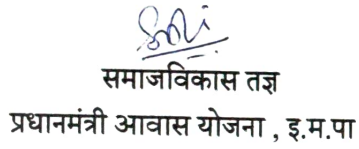 समाजविकास तज्ञ
प्रधानमंत्री आवास योजना , इ.म.पा